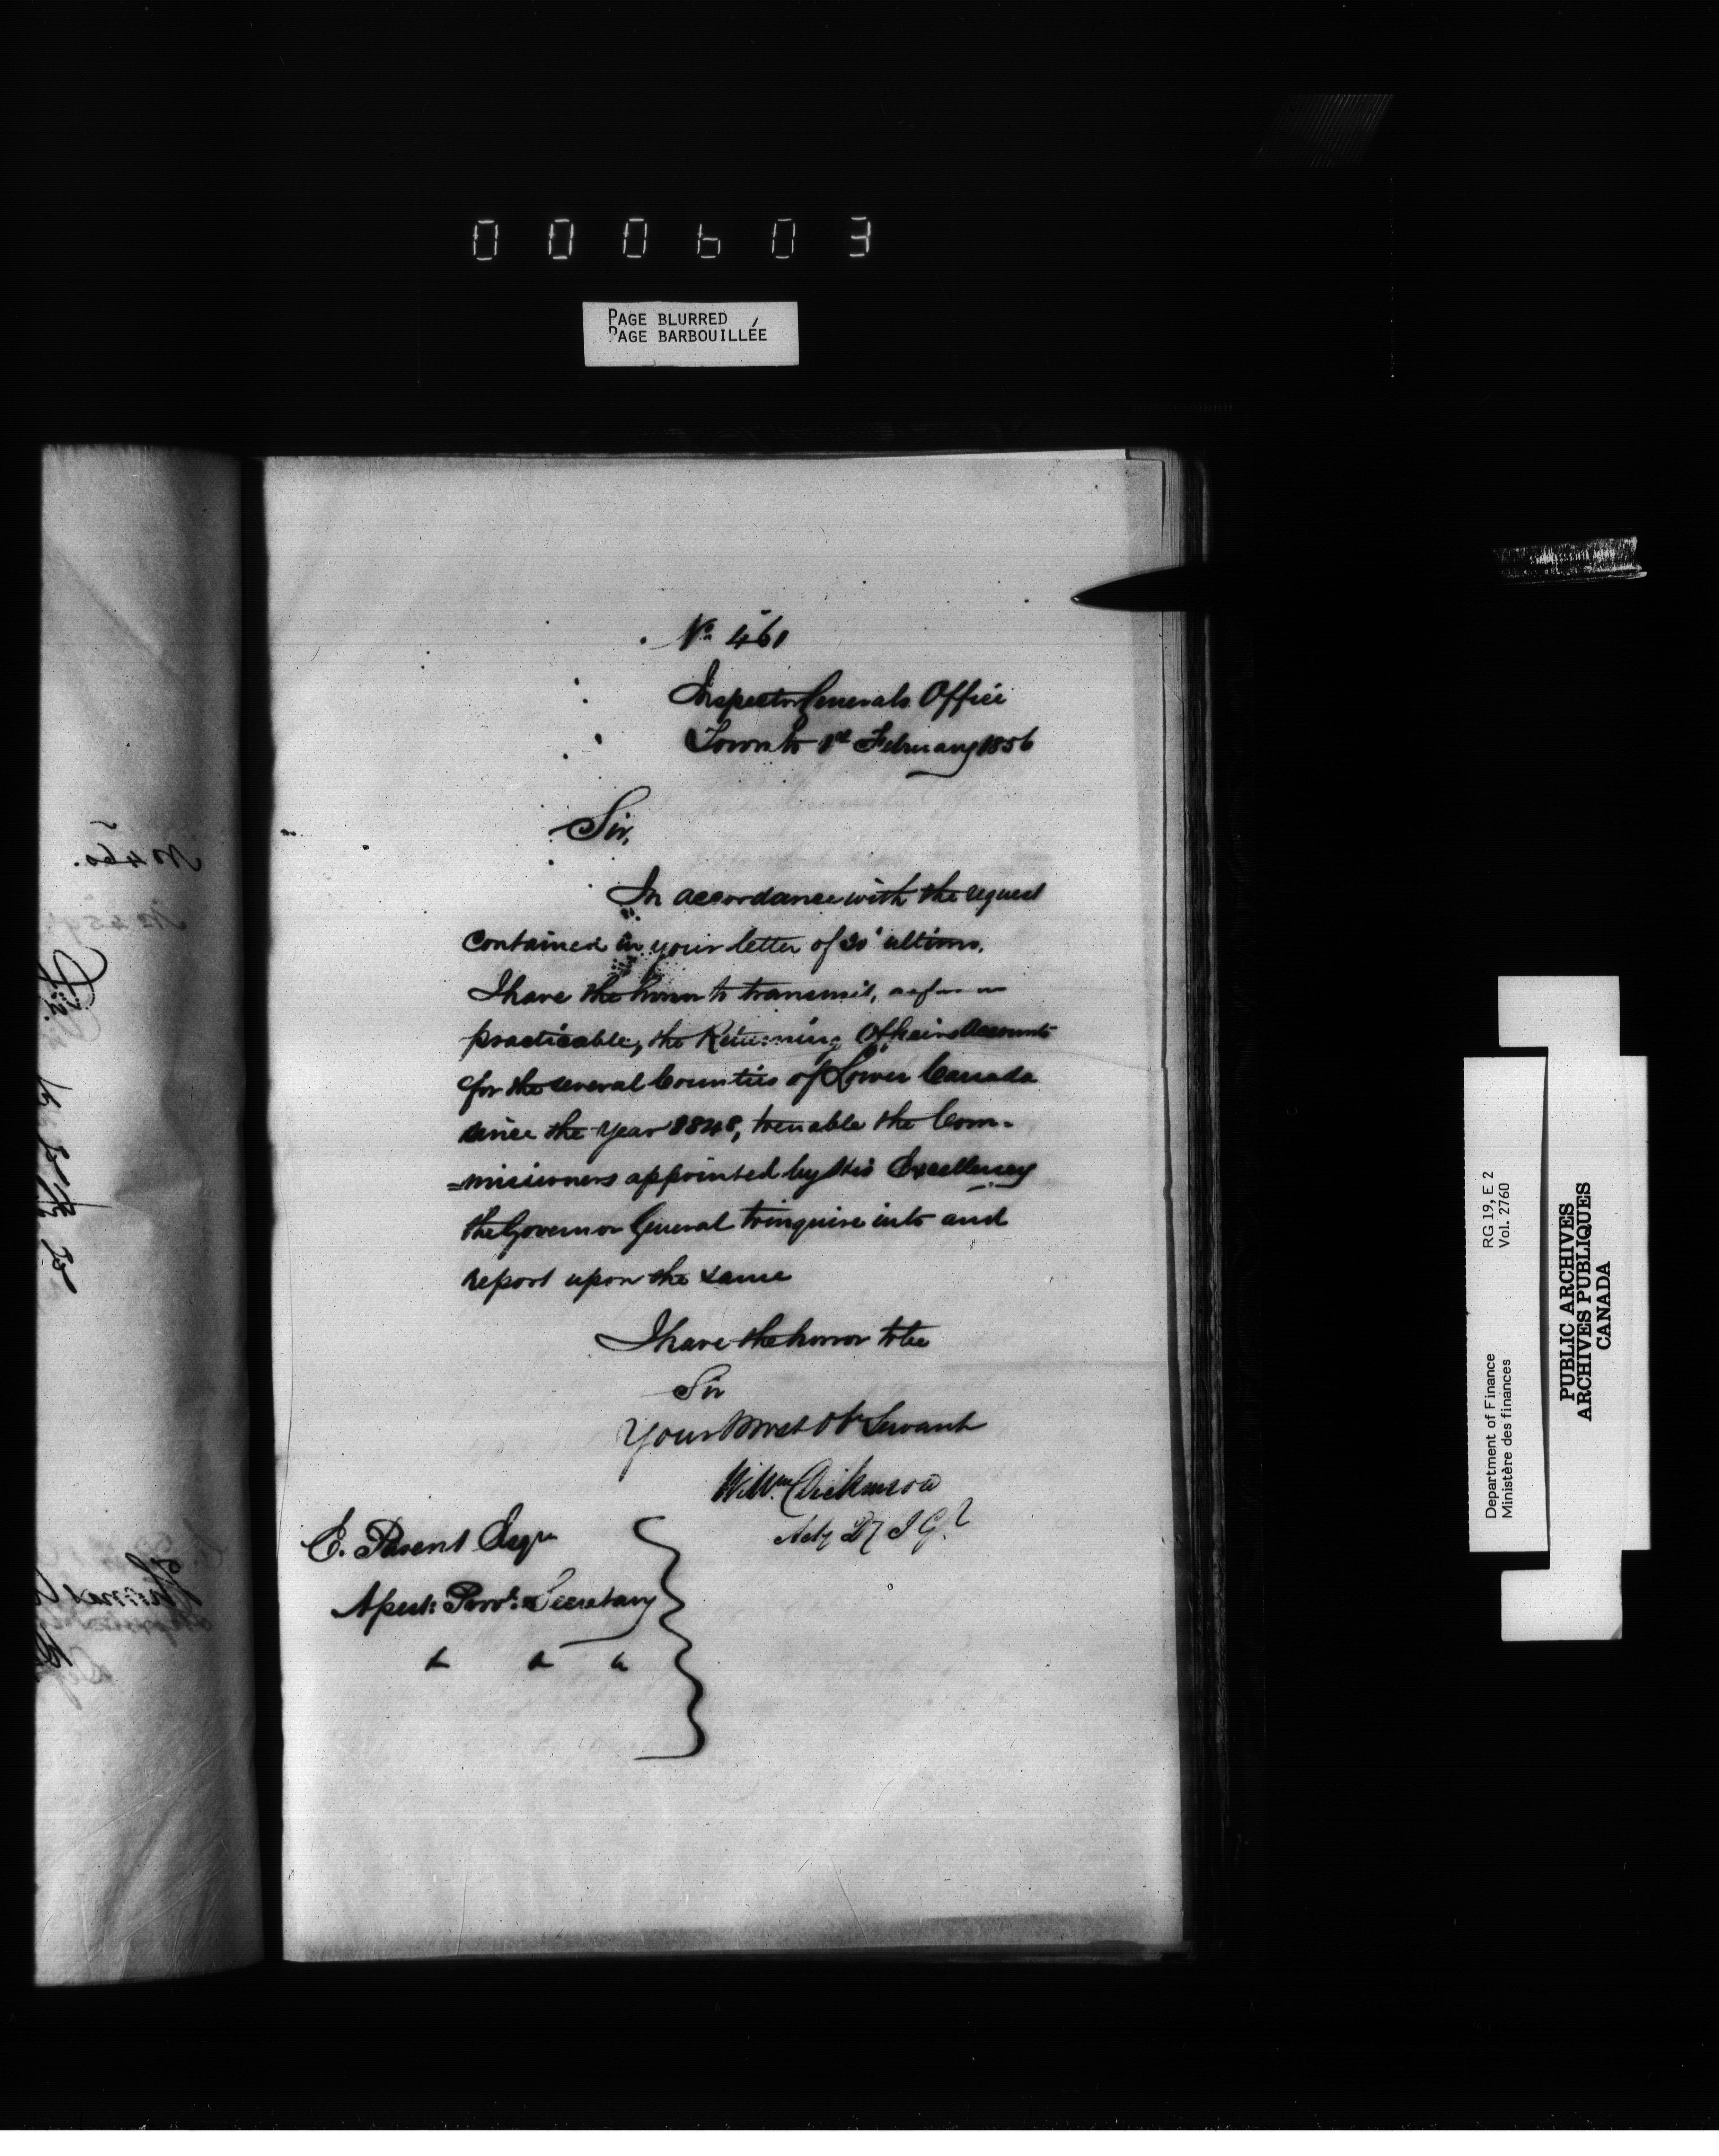 000603
PAGE BLURRED
PAGE BARBOUILLÉE
No 461
Inspector Generals Office
Toronto 1st February 1856
Sir,
In accordance with the request
contained in your letter of 30' ultimo,
I have the honor to transmit, as far as
practicable, the Returning Officers Accounts
for the several Counties of Lower Canada
since the year 1848, to enable the Com-
=missioners appointed by His Excellency
the Governor General to inquire into and
report upon the same
I have the honor to be
Sir
Your Most Ob Servant
Willm Dickinson
Actg Dy I Gl
E. Parent Esqr
Asst: Provl: Secretary
& & &
No 460.
RG 19, E 2
Vol. 2760
Department of Finance
Ministère des finances
PUBLIC ARCHIVES
ARCHIVES PUBLIQUES
CANADA